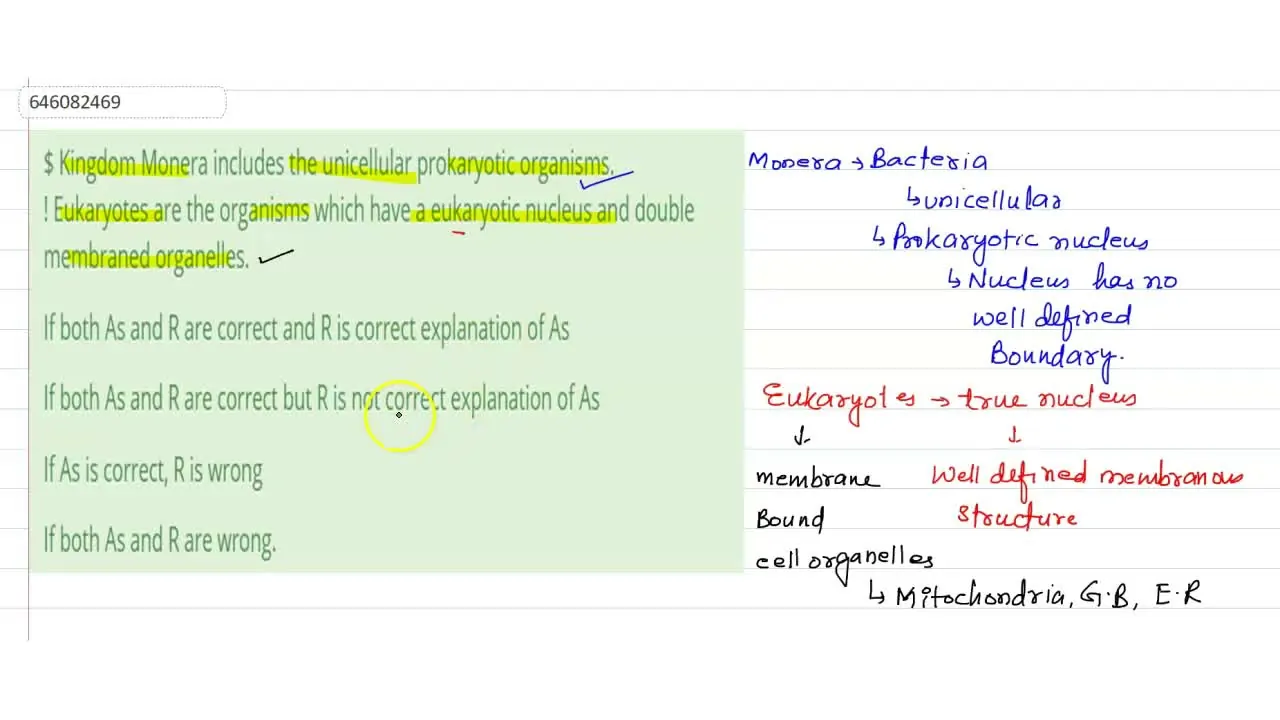 646082469
$ Kingdom Monera includes the unicellular prokaryotic organisms.
! Eukaryotes are the organisms which have a eukaryotic nucleus and double
membraned organelles.
If both As and R are correct and R is correct explanation of As
If both As and R are correct but R is not correct explanation of As
If As is correct, R is wrong
If both As and R are wrong.
Monera → Bacteria
↳ unicellular
↳ Prokaryotic nucleus
↳ Nucleus has no
well defined
Boundary.
Eukaryotes → true nucleus
↓ ↓
membrane Well defined membranous
Bound Structure
cell organelles
↳ Mitochondria, G.B, E.R